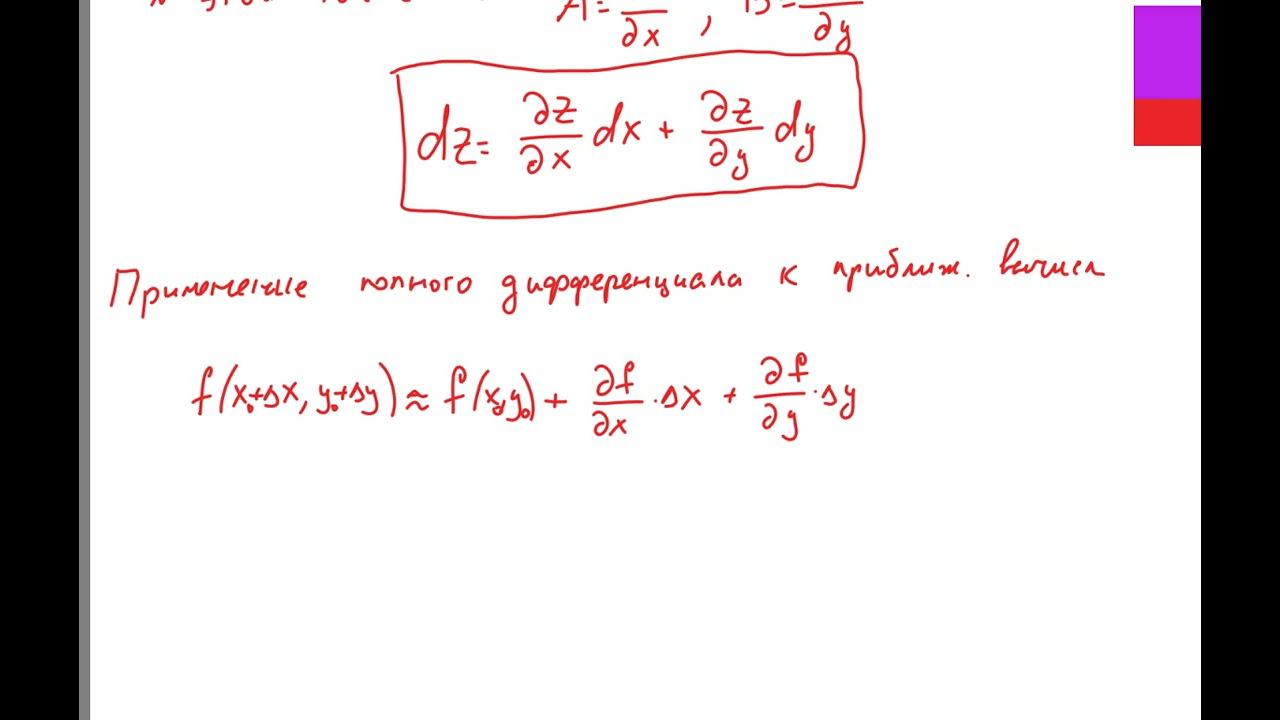 A = ∂x , B = ∂y
dz = ∂z/∂x dx + ∂z/∂y dy
Применение полного дифференциала к приближ. вычисл
f(x₀+Δx, y₀+Δy) ≈ f(x₀,y₀) + ∂f/∂x · Δx + ∂f/∂y · Δy